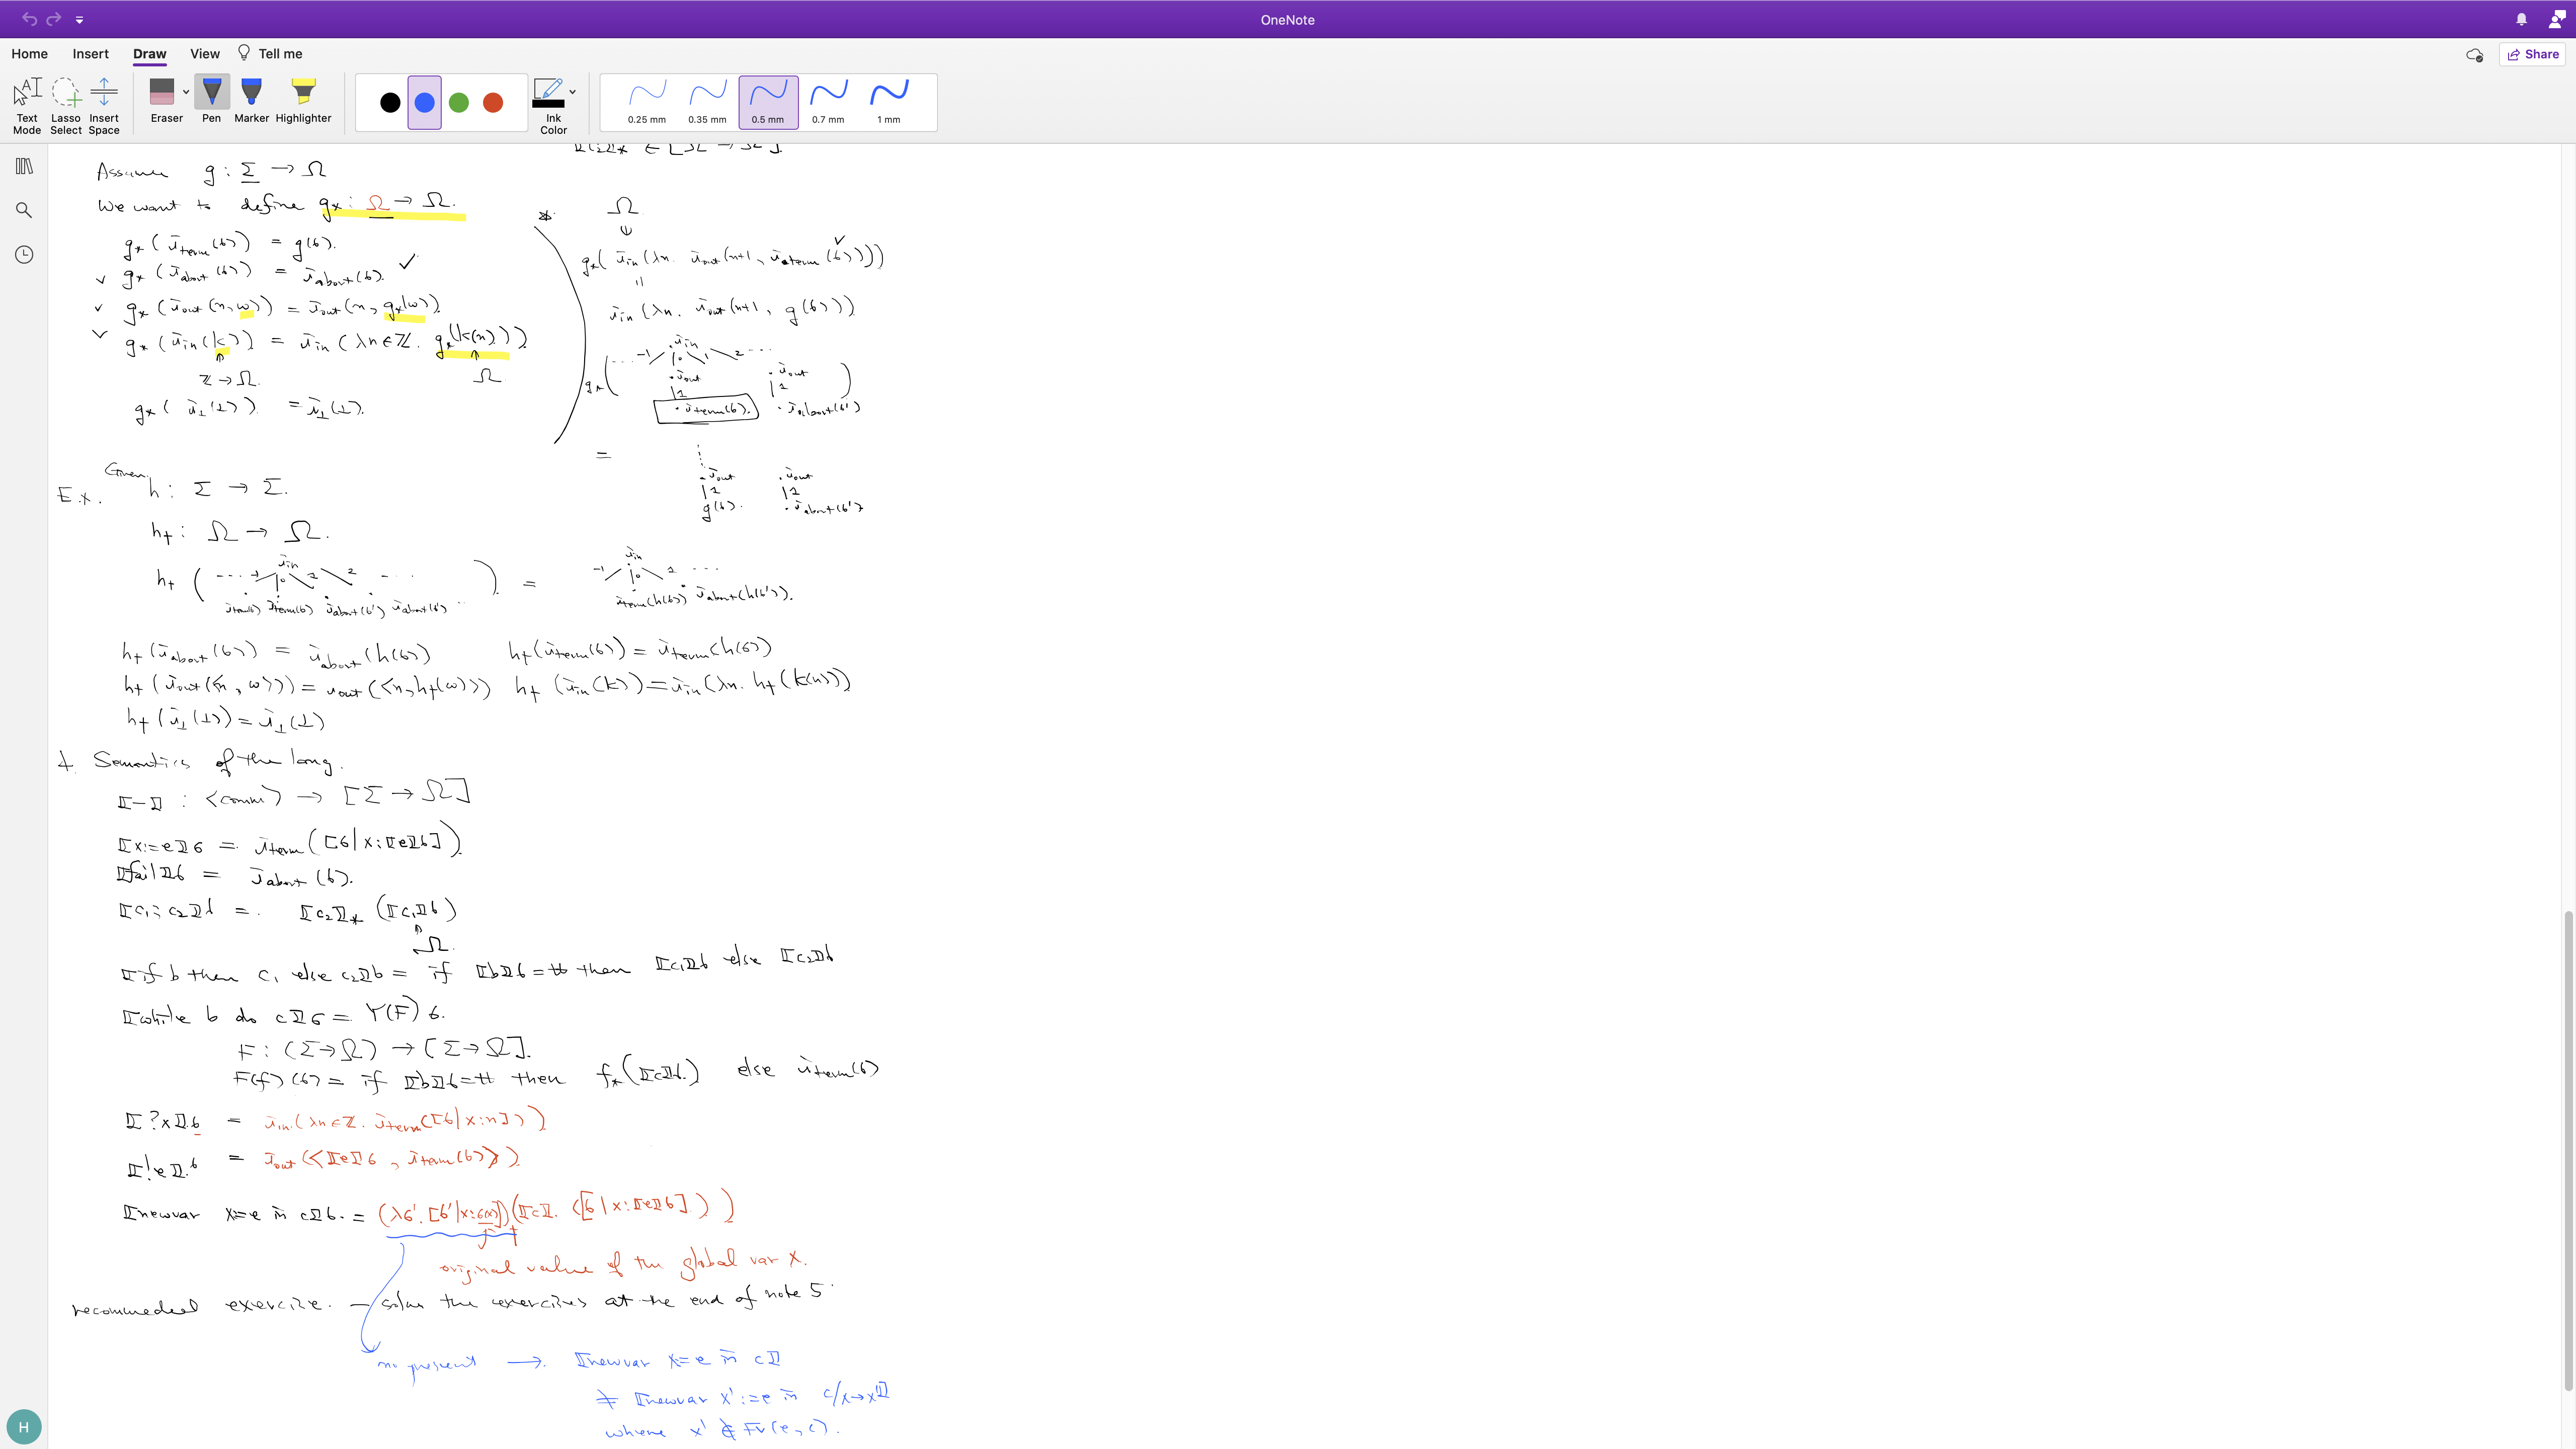 OneNote
Home Insert Draw View Tell me
Share
Text Mode
Lasso Select
Insert Space
Eraser
Pen
Marker
Highlighter
Ink Color
0.25 mm
0.35 mm
0.5 mm
0.7 mm
1 mm
Assume g : Σ → Ω
We want to define g* : Ω → Ω.
g* ( ι_term(σ) ) = g(σ).
✓ g* ( ι_abort(σ) ) = ι_abort(σ). ✓
✓ g* ( ι_out(n, ω) ) = ι_out(n, g*(ω)).
✓ g* ( ι_in(k) ) = ι_in( λn∈ℤ. g*(k(n)) )
↑ ↑
ℤ → Ω. Ω
g* ( ι_⊥(⊥) ) = ι_⊥(⊥).
*
Ω
g*( ι_in (λn. ι_out(n+1, ι_term(σ))))
=
ι_in (λn. ι_out(n+1, g(σ)))
ι_in
... -1 0 1 2 ...
g* (
· ι_out · ι_out
1 1
· ι_term(σ). · ι_abort(σ')
)
=
· ι_out · ι_out
1 1
g(σ). · ι_abort(σ')
Ex. Given h : Σ → Σ.
h† : Ω → Ω.
h† ( ... ι_in ... ) = ι_in
ι_term(σ) ι_term(σ) ι_abort(σ') ι_abort(σ')
ι_term(h(σ)) ι_abort(h(σ')).
h† (ι_abort(σ)) = ι_abort(h(σ)) h†(ι_term(σ)) = ι_term(h(σ))
h† (ι_out(<n, ω>)) = ι_out(<n, h†(ω)>) h† (ι_in(k)) = ι_in(λn. h†(k(n)))
h† (ι_⊥(⊥)) = ι_⊥(⊥)
4. Semantics of the lang.
⟦-⟧ : <comm> → [Σ → Ω]
⟦x:=e⟧σ = ι_term([σ|x:⟦e⟧σ])
⟦fail⟧σ = ι_abort(σ).
⟦c₁; c₂⟧σ = . ⟦c₂⟧* (⟦c₁⟧σ)
↑
Ω.
⟦if b then c₁ else c₂⟧σ = if ⟦b⟧σ = tt then ⟦c₁⟧σ else ⟦c₂⟧σ
⟦while b do c⟧σ = Y(F) σ.
F : (Σ→Ω) → [Σ→Ω].
F(f)(σ) = if ⟦b⟧σ = tt then f*(⟦c⟧σ.) else ι_term(σ)
⟦?x⟧σ = ι_in(λn∈ℤ. ι_term([σ|x:n]))
⟦!e⟧σ = ι_out(<⟦e⟧σ, ι_term(σ)>)
⟦newvar x=e in c⟧σ. = (λσ'. [σ'|x:σ(x)])† (⟦c⟧. ([σ|x:⟦e⟧σ]))
original value of the global var x.
recommeded exercise. — solve the exercises at the end of note 5
no present → ⟦newvar x=e in c⟧
≠ ⟦newvar x':=e in c/x→x'⟧
where x' ∉ FV(e, c).
H